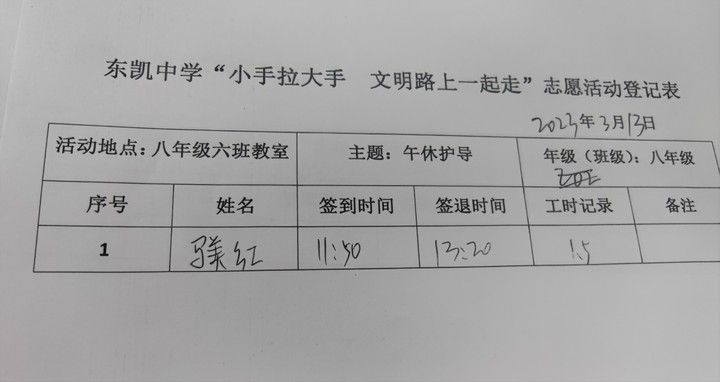 东凯中学“小手拉大手 文明路上一起走”志愿活动登记表
2023年3月13日
活动地点：八年级六班教室 主题：午休护导 年级（班级）：八年级
序号 姓名 签到时间 签退时间 工时记录 备注
1 红 11:50 13:20 1.5